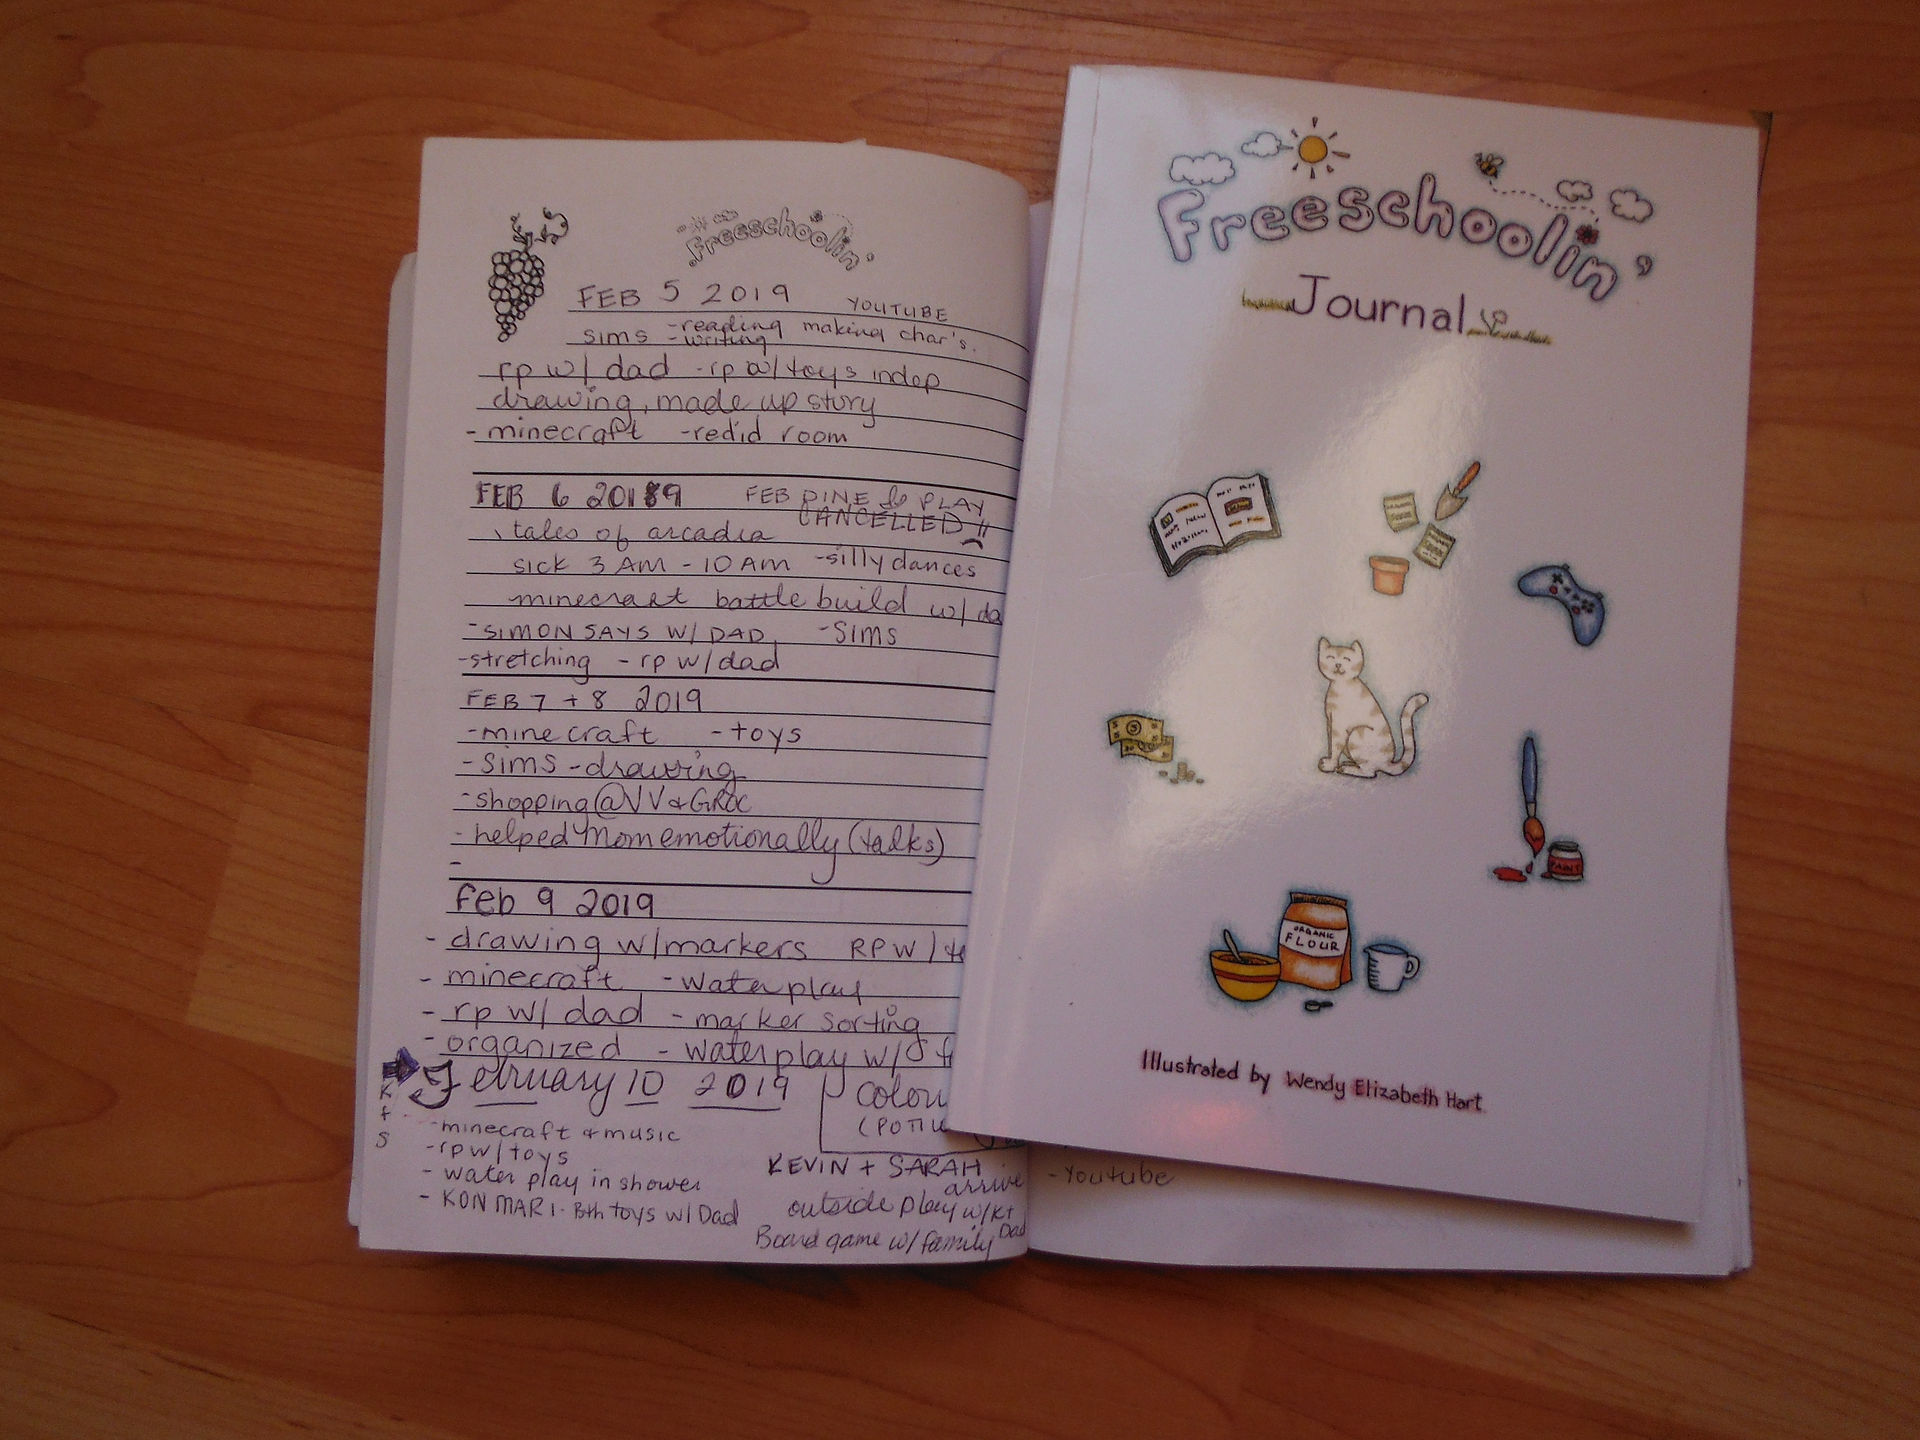 Freeschoolin'
FEB 5 2019 YOUTUBE
sims - reading making char's.
- writing
rp w/ dad - rp w/ toys indep
drawing, made up story
- minecraft - redid room
FEB 6 2019 FEB DINE & PLAY
CANCELLED!!
tales of arcadia
sick 3 AM - 10 AM - silly dances
minecraft battle build w/ da
- SIMON SAYS W/ DAD - Sims
- stretching - rp w/ dad
FEB 7 + 8 2019
- minecraft - toys
- Sims - drawing
- shopping @ VV & GROC
- helped Mom emotionally (talks)
-
Feb 9 2019
- drawing w/ markers RP W/
- minecraft - water play
- rp w/ dad - marker sorting
- organized - water play w/
February 10 2019
K + S
- minecraft & music
- rp w/ toys
- water play in shower
- KON MARI - Bth toys w/ Dad
colou
KEVIN + SARAH
arrive
outside play w/ K+
Dad
Board game w/ family
- Youtube
Freeschoolin'
Journal
ORGANIC
FLOUR
PAINT
Illustrated by Wendy Elizabeth Hart